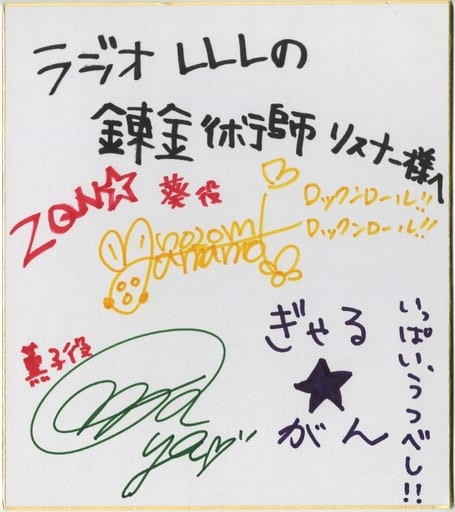 ラジオ LLLの
錬金術師 リスナー様へ
ZQN☆ 葵役
nozomi
yamamoto
ロックンロール!!
ロックンロール!!
薫子役
ぎゃる
★
がん
いっぱい、うつべし!!